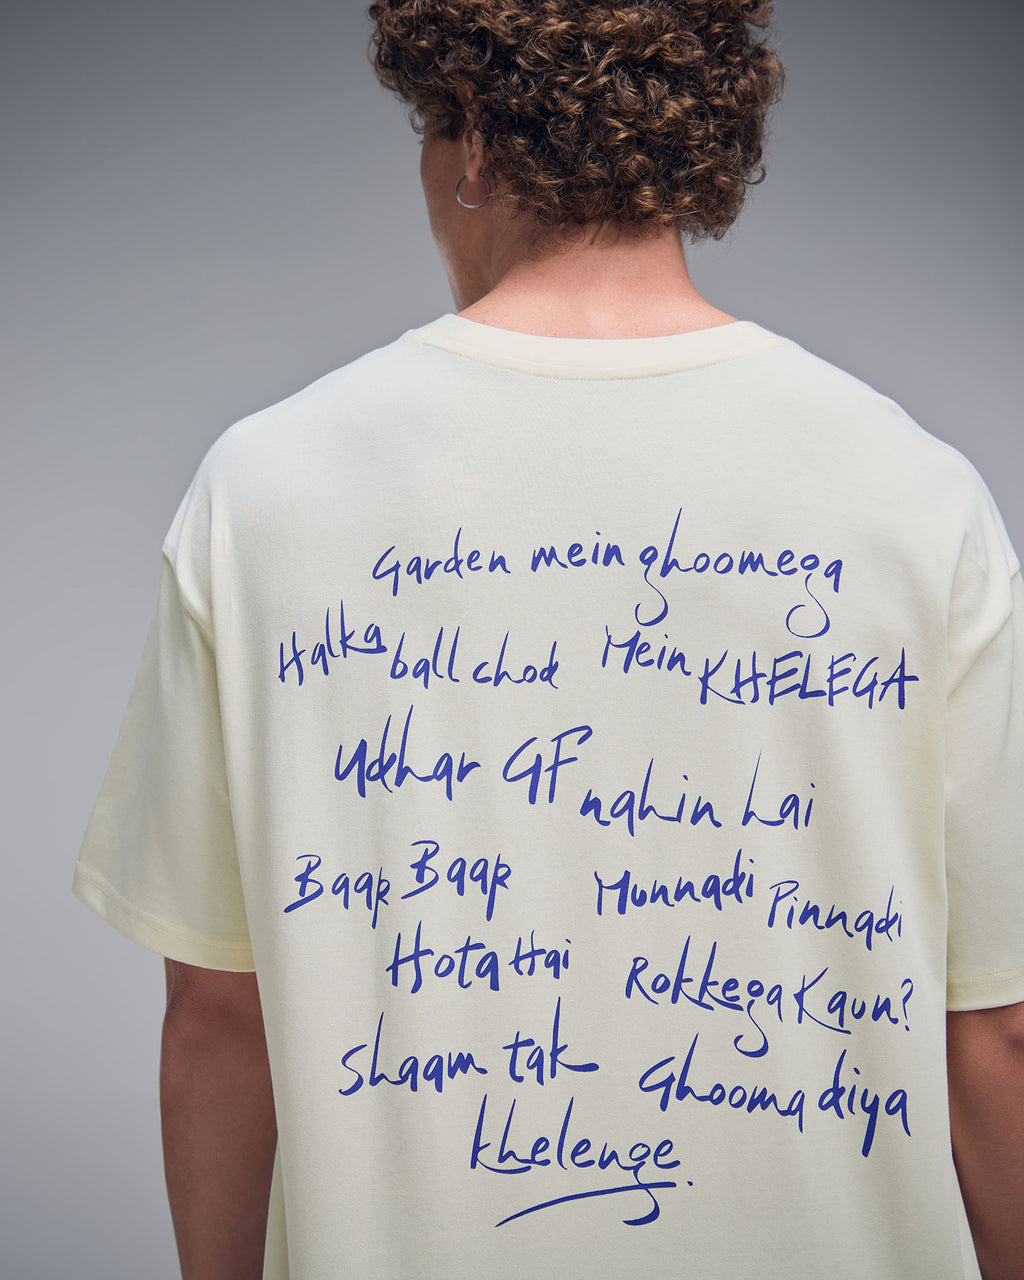 Garden mein ghoomega
Halka ball chod Mein KHELEGA
Udhar GF nahin hai
Baap Baap Hota Hai
Munnadi Pinnadi
Rokkega Kaun?
Shaam tak khelenge.
Ghooma diya